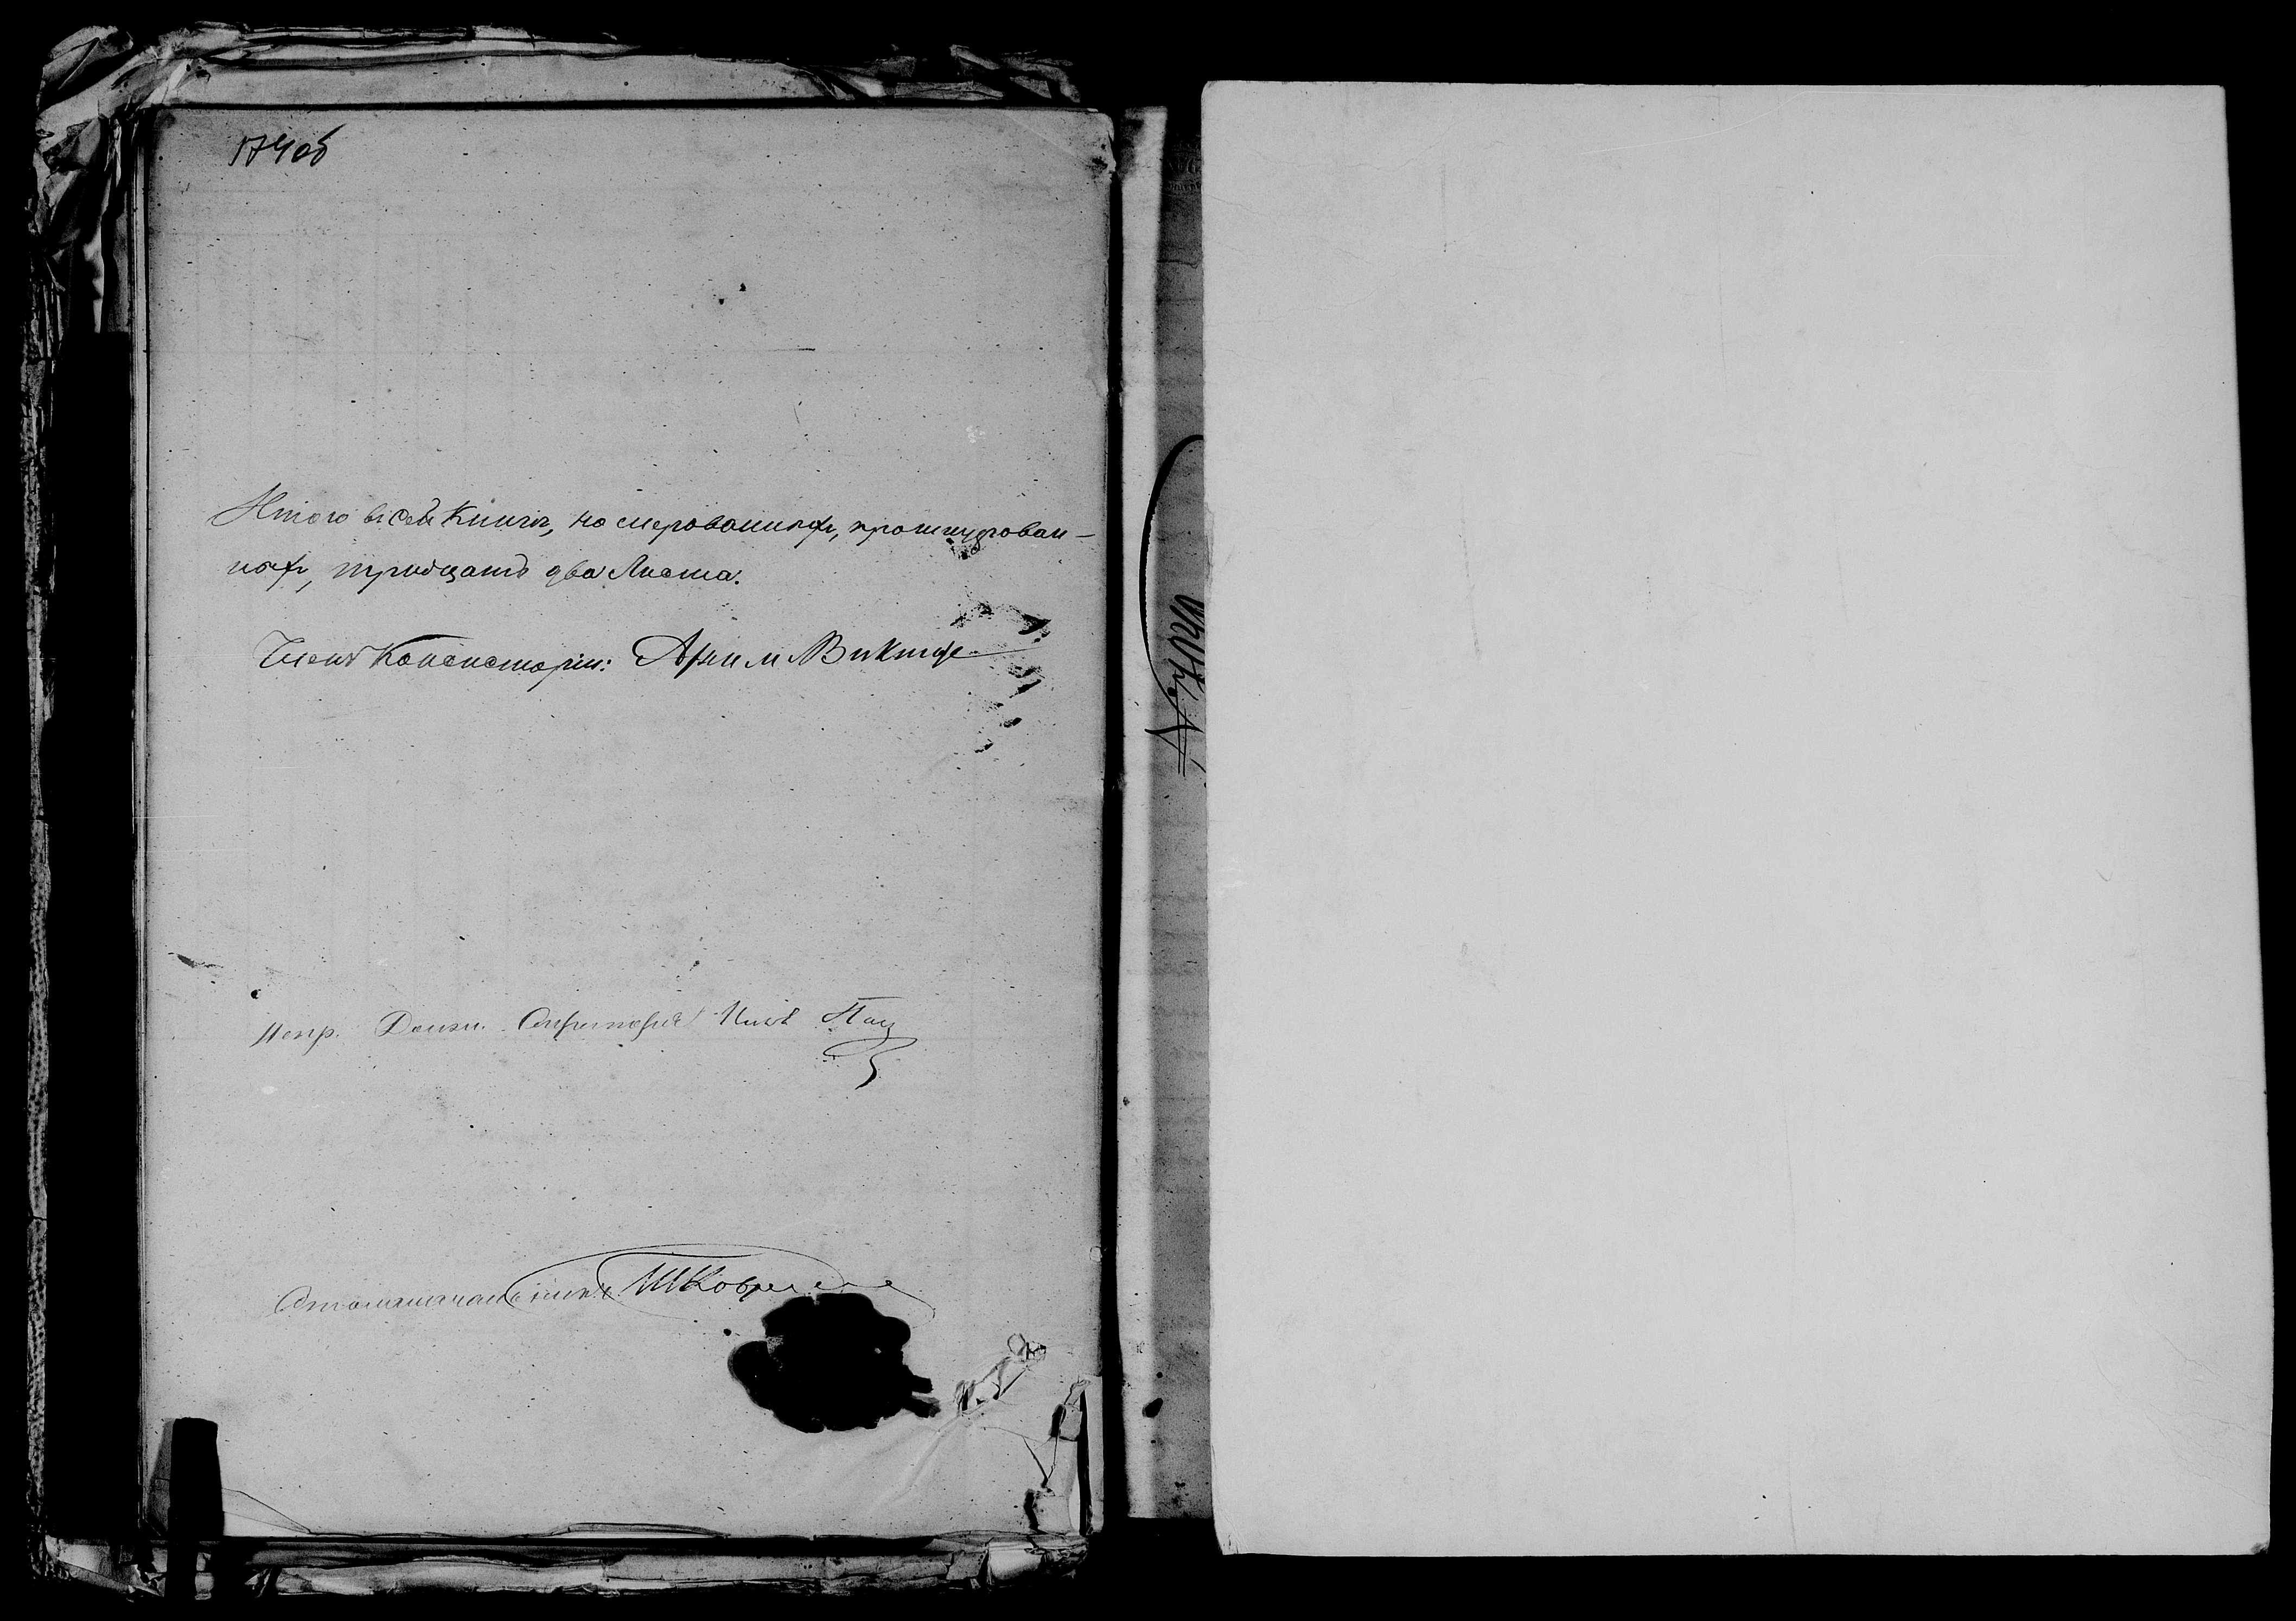 174об
Итого въ сей Книгѣ, номерованныхъ, прошнурован-
ныхъ, тридцать два Листа.
Членъ Консисторіи: Архим. Викторъ
Испр. Должн. Секретаря
Столоначальникъ